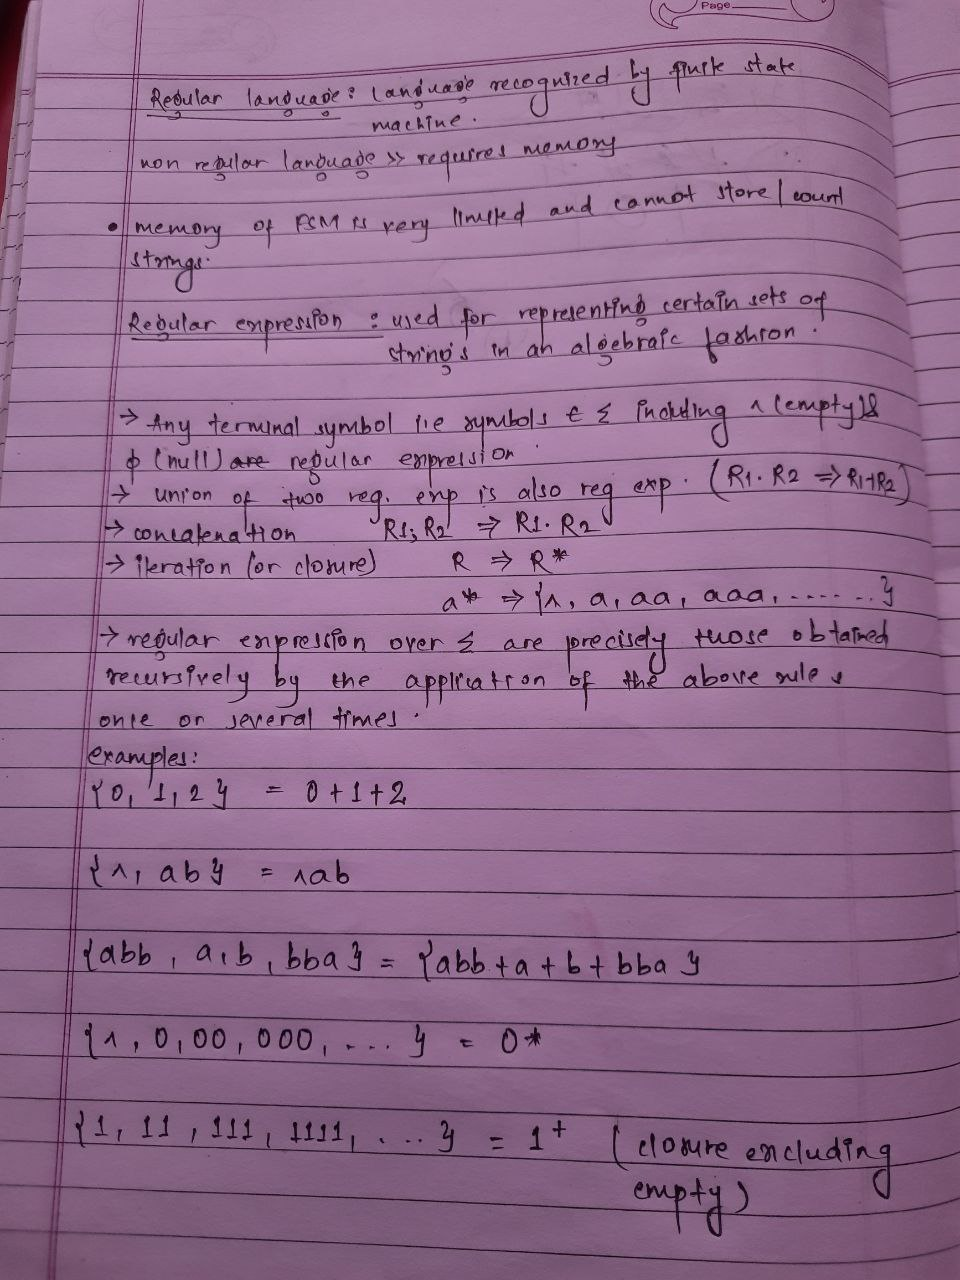 Page
Regular language : language recognized by finite state
machine.
non regular language >> requires memory
• memory of FSM is very limited and cannot store / count
strings.
Regular expression : used for representing certain sets of
strings in an algebraic fashion.
→ Any terminal symbol i.e symbols ∈ Σ including ∧ (empty) &
ϕ (null) are regular expression
→ union of two reg. exp is also reg exp. (R1. R2 ⇒ R1+R2)
→ concatenation R1, R2 ⇒ R1. R2
→ iteration (or closure) R ⇒ R*
a* ⇒ {∧, a, aa, aaa, ......}
→ regular expression over Σ are precisely those obtained
recursively by the application of the above rules
once or several times.
examples:
{0, 1, 2} = 0 + 1 + 2
{∧, ab} = ∧ab
{abb, a, b, bba} = {abb + a + b + bba}
{∧, 0, 00, 000, ....} = 0*
{1, 11, 111, 1111, ....} = 1+ (closure excluding
empty)